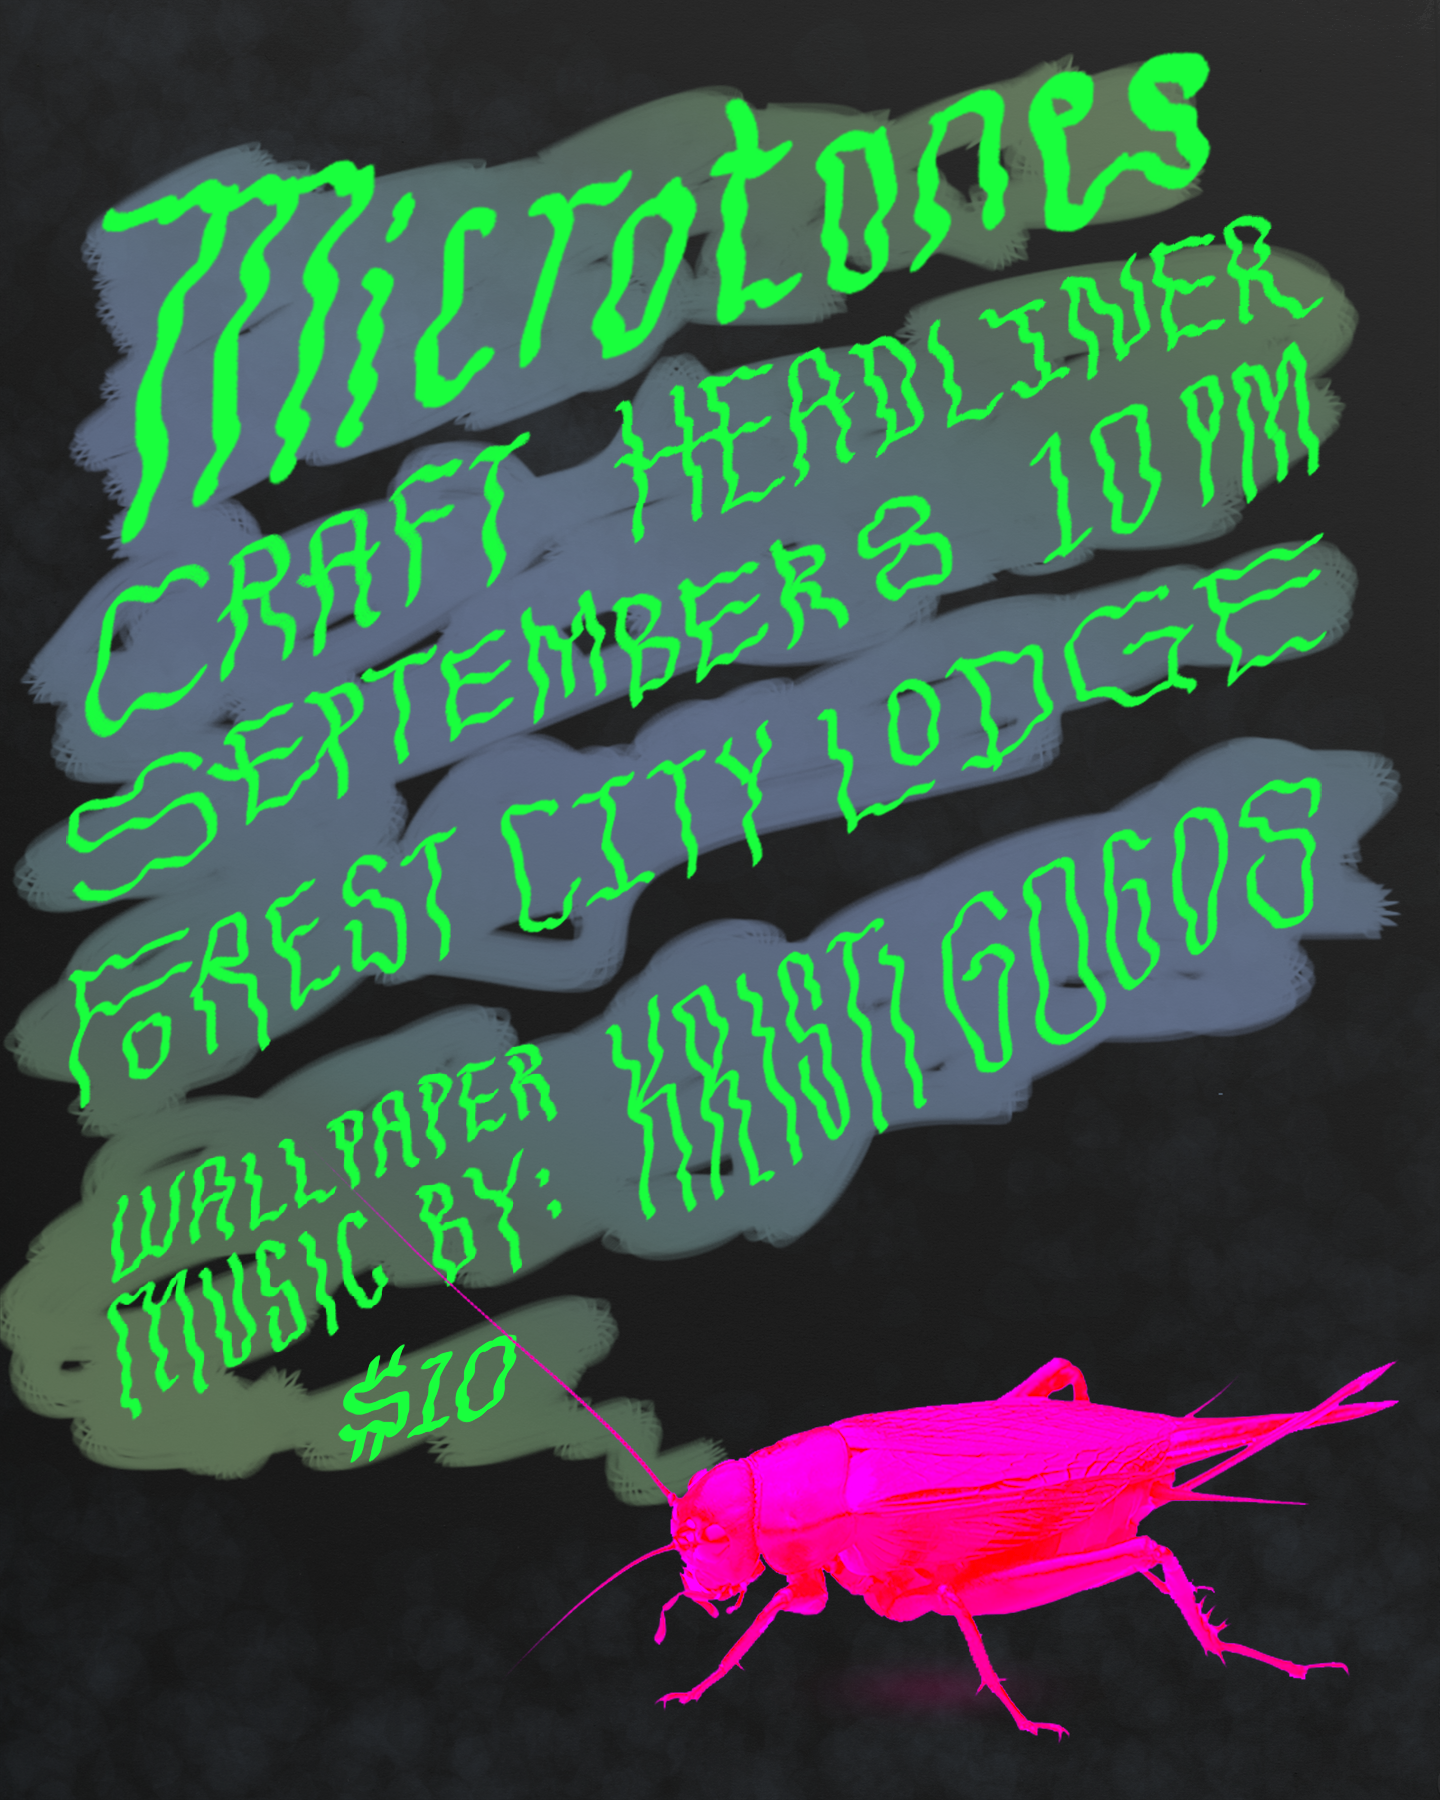 Microtones
CRAFT HEADLINER
SEPTEMBER 8 10 PM
FOREST CITY LODGE
WALLPAPER
MUSIC BY: KRISTI GOGOS
$10